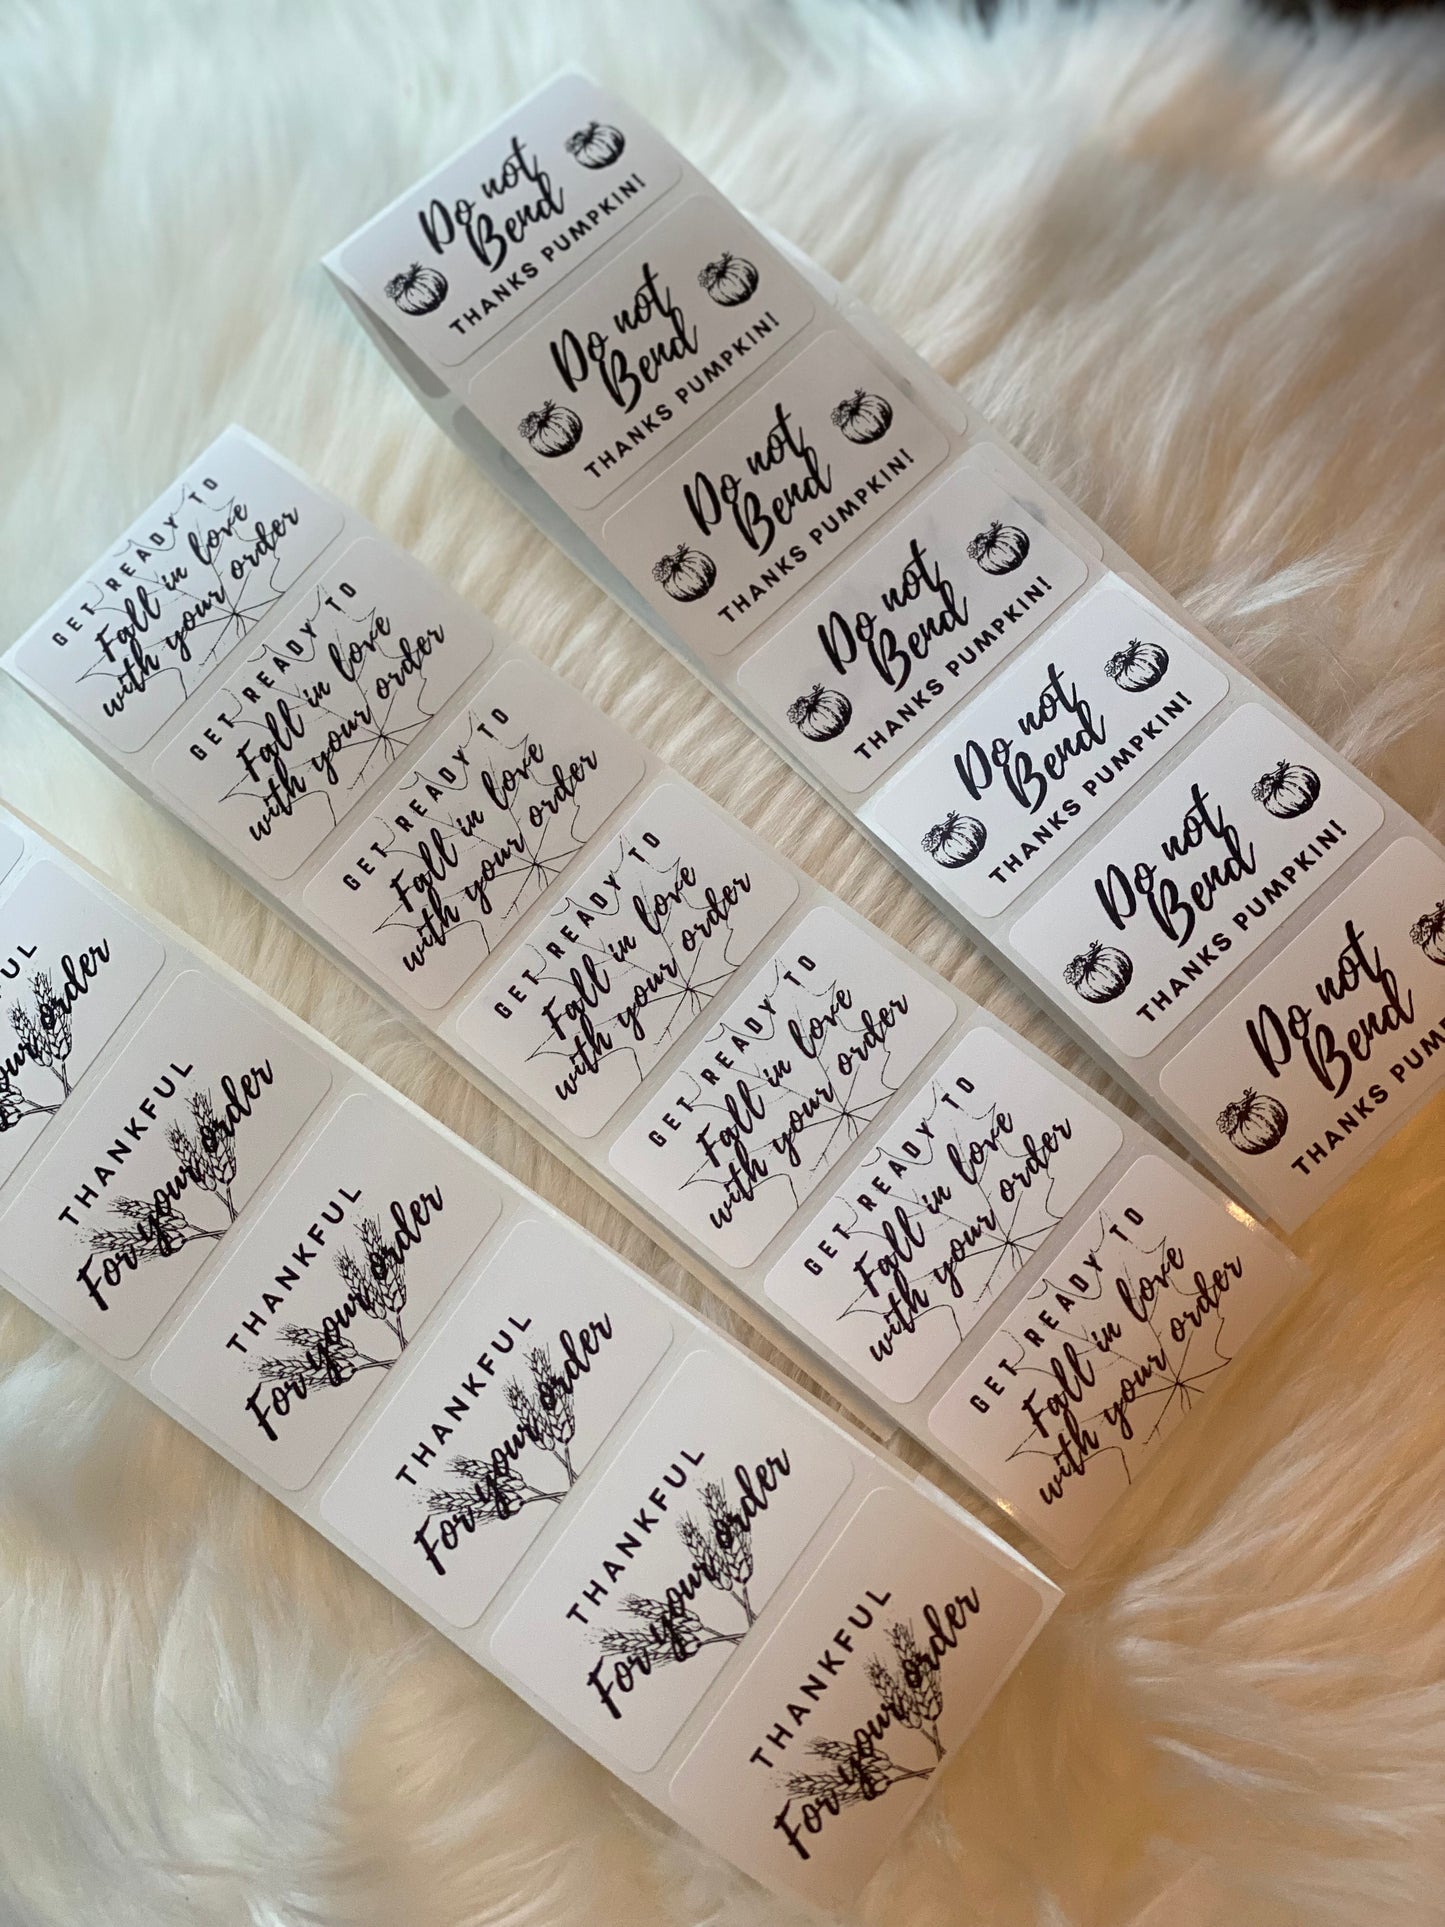 Do not
Bend
THANKS PUMPKIN!
Do not
Bend
THANKS PUMPKIN!
Do not
Bend
THANKS PUMPKIN!
Do not
Bend
THANKS PUMPKIN!
Do not
Bend
THANKS PUMPKIN!
Do not
Bend
THANKS PUMPKIN!
Do not
Bend
THANKS PUMP
GET READY TO
Fall in love
with your order
GET READY TO
Fall in love
with your order
GET READY TO
Fall in love
with your order
GET READY TO
Fall in love
with your order
GET READY TO
Fall in love
with your order
GET READY TO
Fall in love
with your order
GET READY TO
Fall in love
with your order
UL
your order
THANKFUL
For your order
THANKFUL
For your order
THANKFUL
For your order
THANKFUL
For your order
THANKFUL
For your order